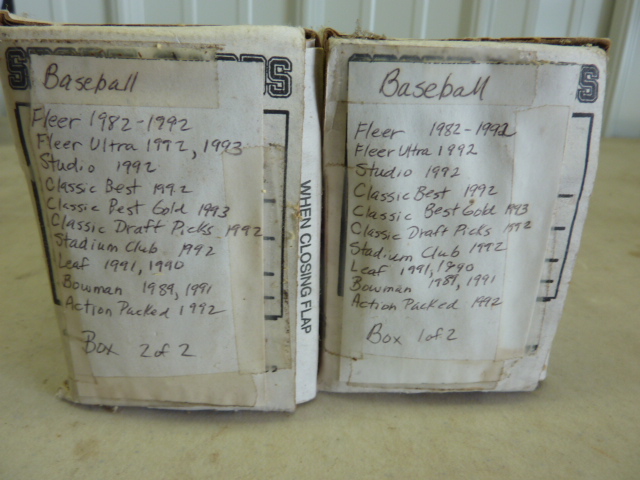 Baseball
Fleer 1982-1992
Fleer Ultra 1992, 1993
Studio 1992
Classic Best 1992
Classic Best Gold 1993
Classic Draft Picks 1992
Stadium Club 1992
Leaf 1991, 1990
Bowman 1989, 1991
Action Packed 1992
Box 2 of 2
WHEN CLOSING FLAP
Baseball
Fleer 1982-1992
Fleer Ultra 1992
Studio 1992
Classic Best 1992
Classic Best Gold 1993
Classic Draft Picks 1992
Stadium Club 1992
Leaf 1991, 1990
Bowman 1989, 1991
Action Packed 1992
Box 1 of 2